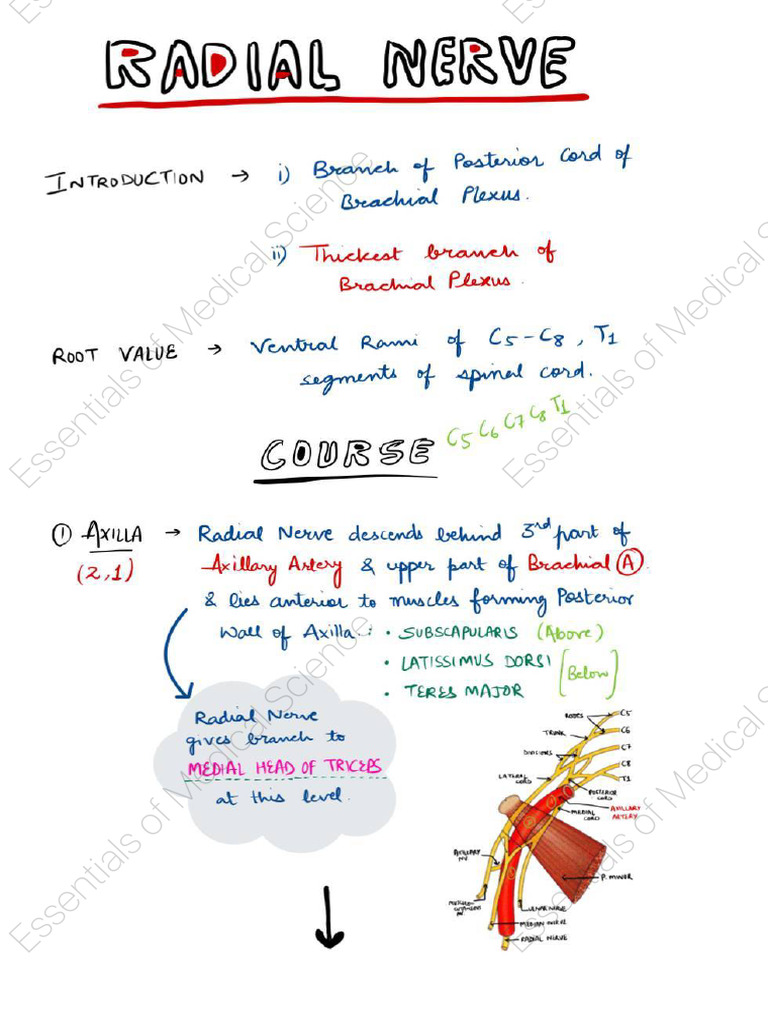 RADIAL NERVE
INTRODUCTION → i) Branch of Posterior Cord of
Brachial Plexus.
ii) Thickest branch of
Brachial Plexus.
ROOT VALUE → Ventral Rami of C5-C8, T1
segments of spinal cord.
C5 C6 C7 C8 T1
COURSE
① AXILLA → Radial Nerve descends behind 3rd part of
(2,1) Axillary Artery & upper part of Brachial Ⓐ.
& lies anterior to muscles forming Posterior
Wall of Axilla: • SUBSCAPULARIS (Above)
• LATISSIMUS DORSI [Below]
• TERES MAJOR
Radial Nerve
gives branch to
MEDIAL HEAD OF TRICEPS
at this level.
ROOTS
C5
C6
TRUNK
C7
DIVISIONS
C8
T1
LATERAL CORD
POSTERIOR CORD
MEDIAL CORD
AXILLARY ARTERY
AXILLARY NV
P. MINOR
ULNAR NERVE
MEDIAN NERVE
RADIAL NERVE
Essentials of Medical Science
Essentials of Medical Science
Essentials of Medical Science
Essentials of Medical Science